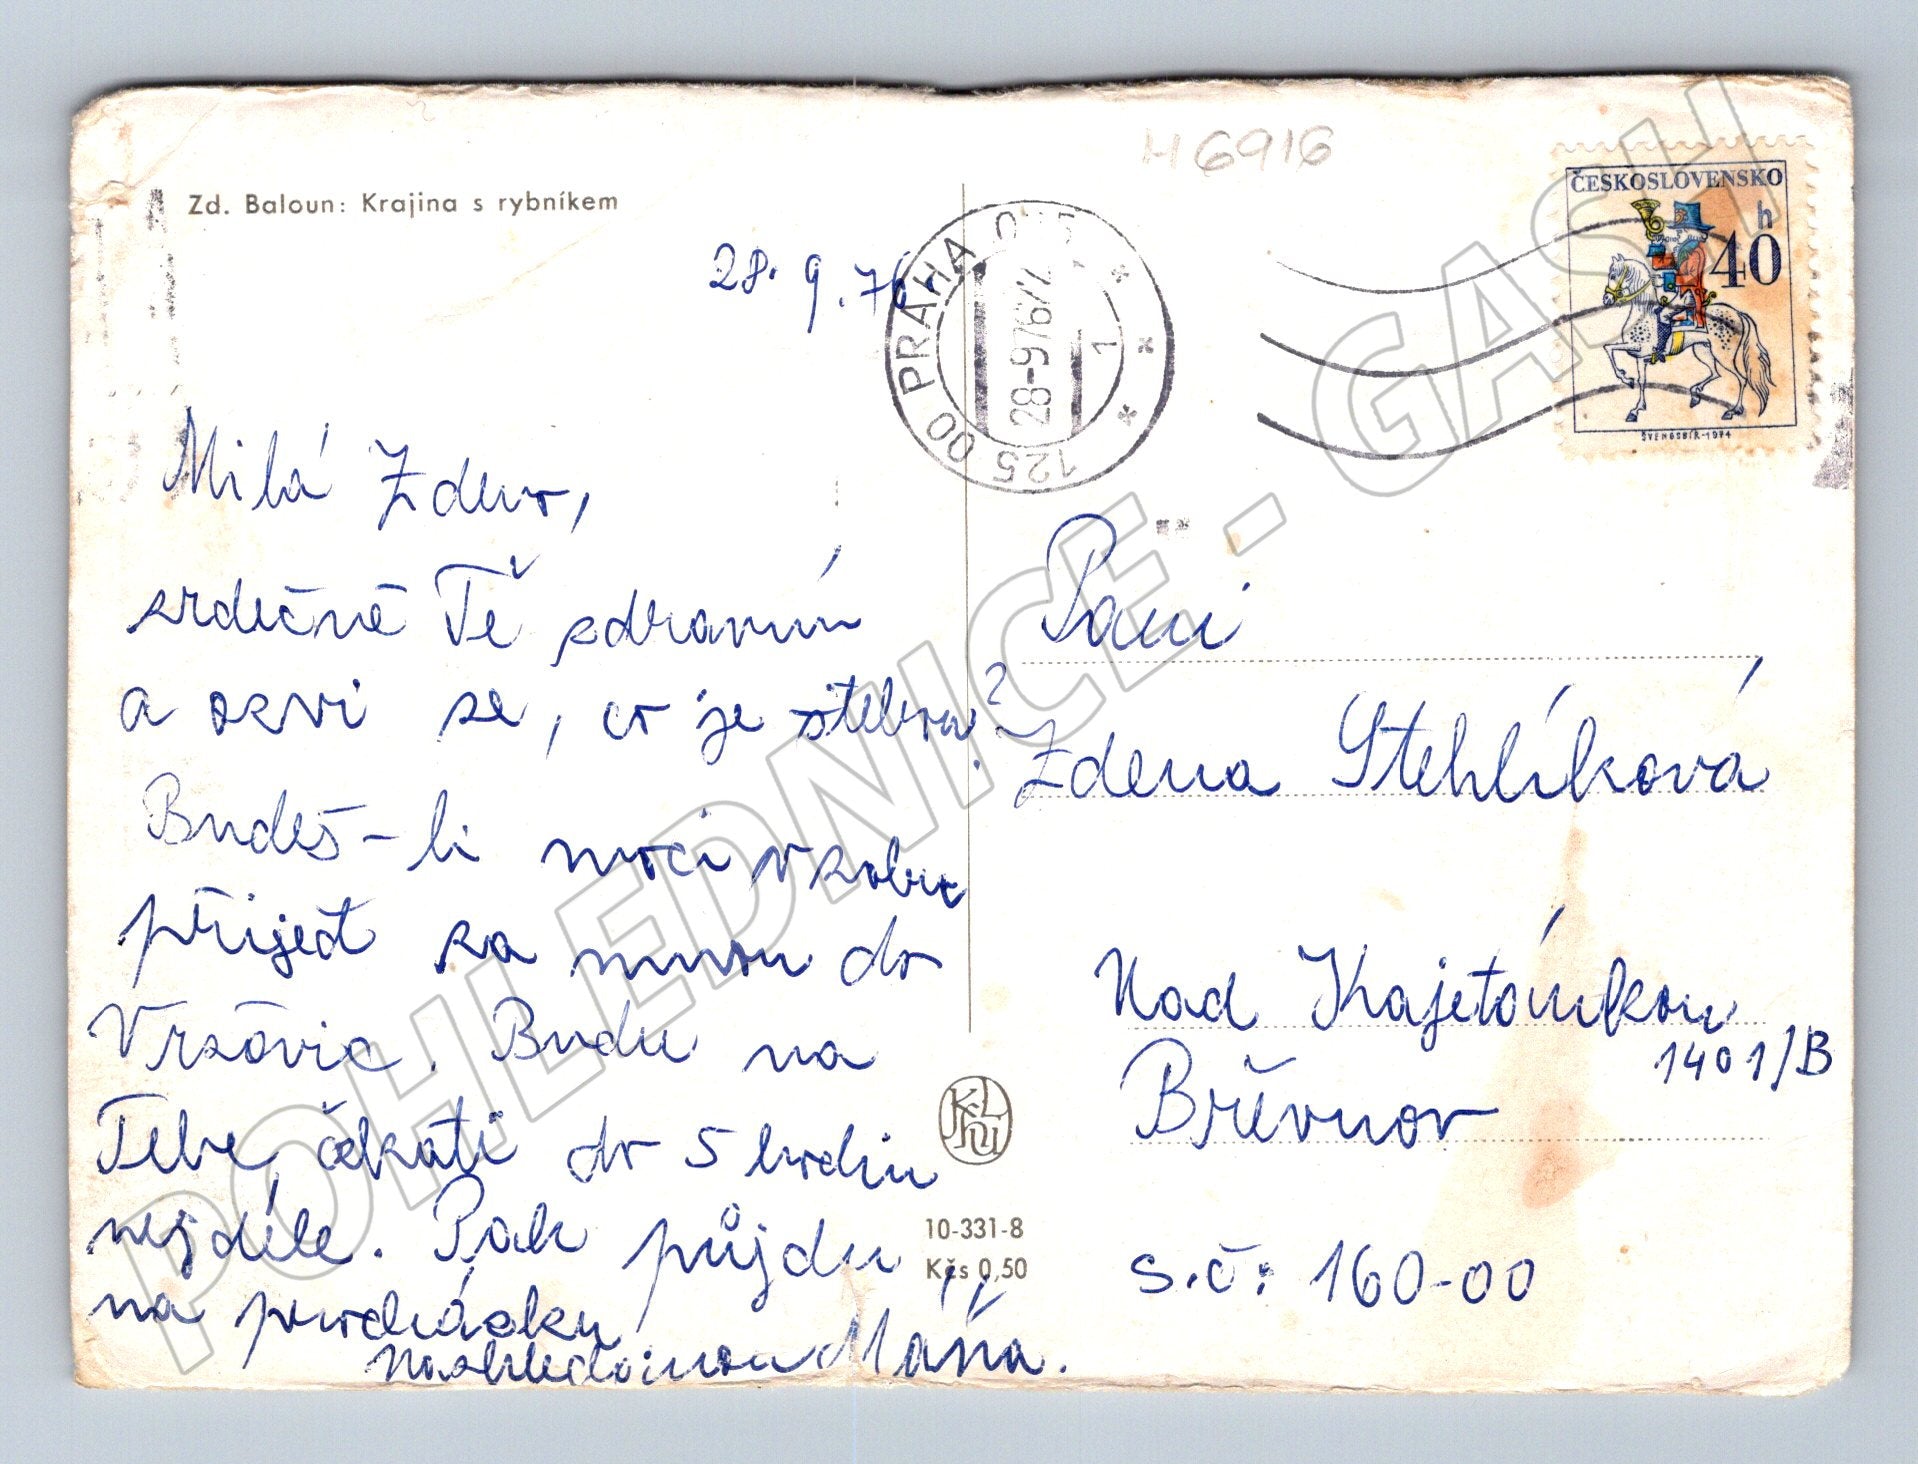 Zd. Baloun: Krajina s rybníkem
H 6916
ČESKOSLOVENSKO
40 h
ŠVENGSBÍR-1974
125 00 PRAHA 025
28-9 76
1
28. 9. 76.
Milá Zdeno,
srdečně Tě zdravím
a ozvi se, co je s tebou?
Budeš-li moci v sobotu
přijeď za mnou do
Vršovic. Budu na
Tebe čekati do 5 hodin
nejdéle. Pak půjdu
na procházku
Nashledanou Máňa.
Paní
Zdena Stehlíková
Nad Kajetánkou
1401/B
Břevnov
s.č: 160-00
10-331-8
Kčs 0,50
POHLEDNICE - GASH